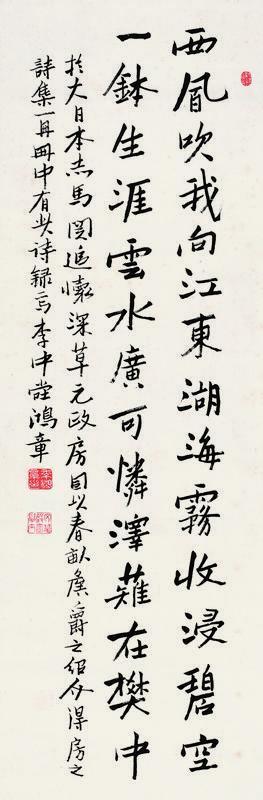 西風吹我向江東湖海霧收浸碧空
一鉢生涯雲水廣可憐澤薙在樊中
於大日本赤馬関追懷深草元政房因以春畝侯爵之紹介得房之
詩集一冊冊中有此诗録焉李中堂鴻章